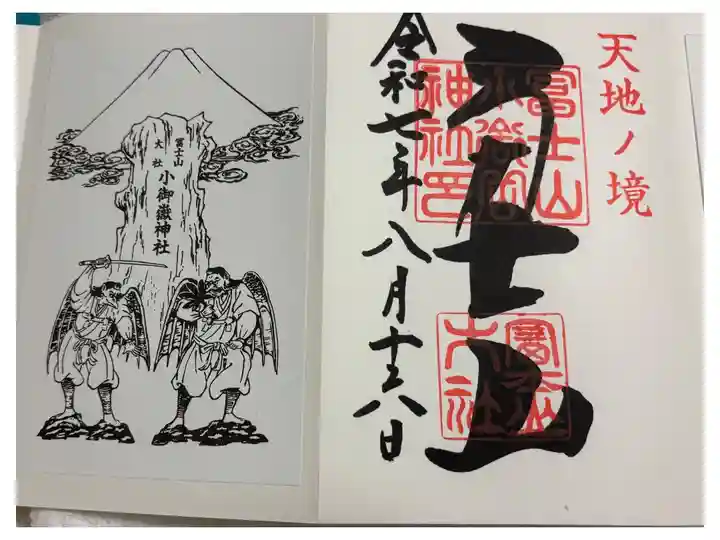 冨士山
大社
小御嶽神社
天地ノ境
冨士山
冨士山
小御嶽
神社印
冨士山
大社
令和七年八月十六日